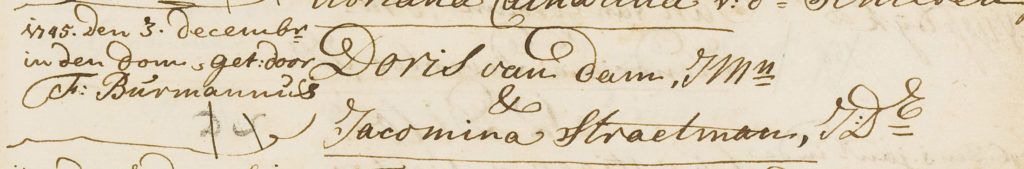 1745. den 3. decembr
in den dom, get: door
F: Burmannus
Doris van Dam, J:Mn
&
Jacomina Straetman, J:DE